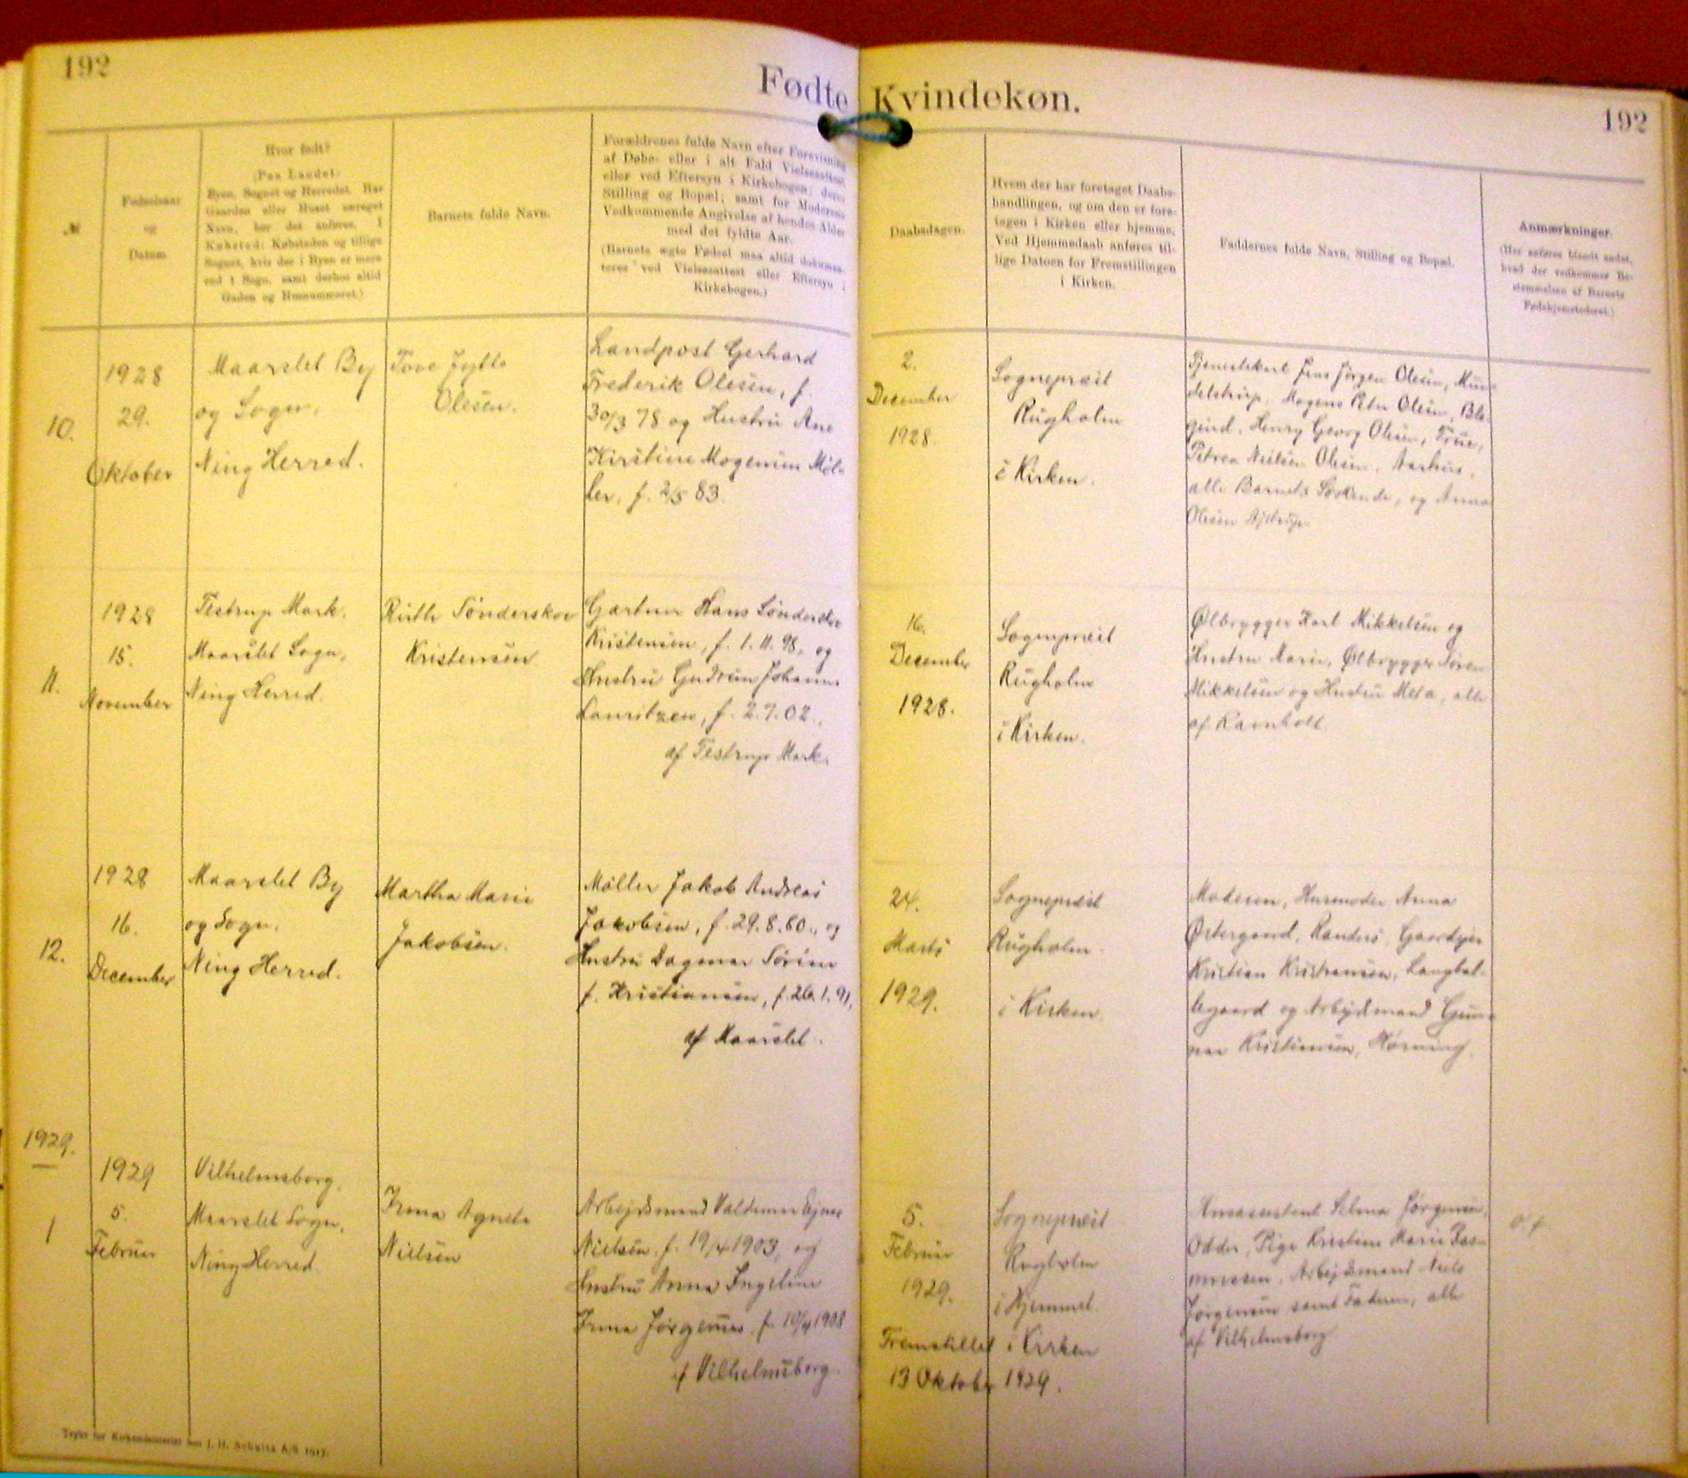 192
Fødte Kvindekøn.
192
№
Fødselsaar
og
Datum
Hvor født?
(Paa Landet:
Byen, Sognet og Herredet. Har
Gaarden eller Huset særeget
Navn, bør det anføres. I
Købsted: Købstaden og tillige
Sognet, hvis der i Byen er mere
end 1 Sogn, samt derhos altid
Gaden og Husnummeret.)
Barnets fulde Navn.
Forældrenes fulde Navn efter Forevisning
af Døbe- eller i alt Fald Vielsesattest,
eller ved Eftersyn i Kirkebogen; deres
Stilling og Bopæl; samt for Moderens
Vedkommende Angivelse af hendes Alder
med det fyldte Aar.
(Barnets ægte Fødsel maa altid dokumen-
teres ved Vielsesattest eller Eftersyn i
Kirkebogen.)
Daabsdagen.
Hvem der har foretaget Daabs-
handlingen, og om den er fore-
tagen i Kirken eller hjemme.
Ved Hjemmedaab anføres til-
lige Datoen for Fremstillingen
i Kirken.
Faddernes fulde Navn, Stilling og Bopæl.
Anmærkninger.
(Her anføres blandt andet,
hvad der vedkommer Be-
stemmelsen af Barnets
Fødehjemstedsret.)
10.
1928
29.
Oktober
Maarslet By
og Sogn,
Ning Herred.
Tove Jytte
Olesen.
Landpost Gerhard
Frederik Olesen, f.
30/3 78 og Hustru Ane
Kirstine Mogensen Møl-
ler, f. 2/5 83.
2.
December
1928.
Sognepræst
Rugholm
i Kirken.
Tjenestekarl Jens Jörgen Olesen, Mun-
delstrup, Mogens Peter Olesen,
Henry Georg Olesen, True,
Petrea Nielsen Olesen, Aarhus,
alle Barnets Søskende, og Anna
Olesen
11.
1928
15.
November
Testrup Mark.
Maarslet Sogn,
Ning Herred.
Ruth Sönderskov
Kristensen
Gartner Hans Sönderskov
Kristensen, f. 1.11.98, og
Hustru Gudrun Johanne
Lauritzen, f. 2.7.02.,
af Testrup Mark.
16.
December
1928.
Sognepræst
Rugholm
i Kirken.
Ølbrygger Karl Mikkelsen og
Hustru Marie, Ølbrygger Sören
Mikkelsen og Hustru Meta, alle
af Ravnholt.
12.
1928
16.
December
Maarslet By
og Sogn.
Ning Herred.
Martha Marie
Jakobsen.
Møller Jakob Andreas
Jakobsen, f. 29.8.60., og
Hustru Dagmar Sörine
f. Kristiansen, f. 26.1.91,
af Maarslet.
24.
Marts
1929.
Sognepræst
Rugholm
i Kirken
Moderen, Husmoder Anna
Østergaard, Randers, Gaardejer
Kristian Kristiansen, Langbal-
legaard og Arbejdsmand Gun-
nar Kristiansen, Hørning.
1929.
1
1929
5.
Februar
Vilhelmsborg.
Maarslet Sogn.
Ning Herred.
Irma Agnete
Nielsen
Arbejdsmand Valdemar Ejner
Nielsen f. 19/4 1903, og
Hustru Anna Ingeline
Irma Jørgensen f. 10/4 1908
af Vilhelmsborg.
5.
Februar
1929.
Sognepræst
Rugholm
i Hjemmet.
Fremstillet i Kirken
13 Oktober 1929.
Selma Jørgensen,
Odder, Pige Kristine Marie Ras-
mussen, Arbejdsmand Niels
Jørgensen samt Faderen, alle
af Vilhelmsborg
Trykt for Kirkeministeriet hos J. H. Schultz A/S 1917.